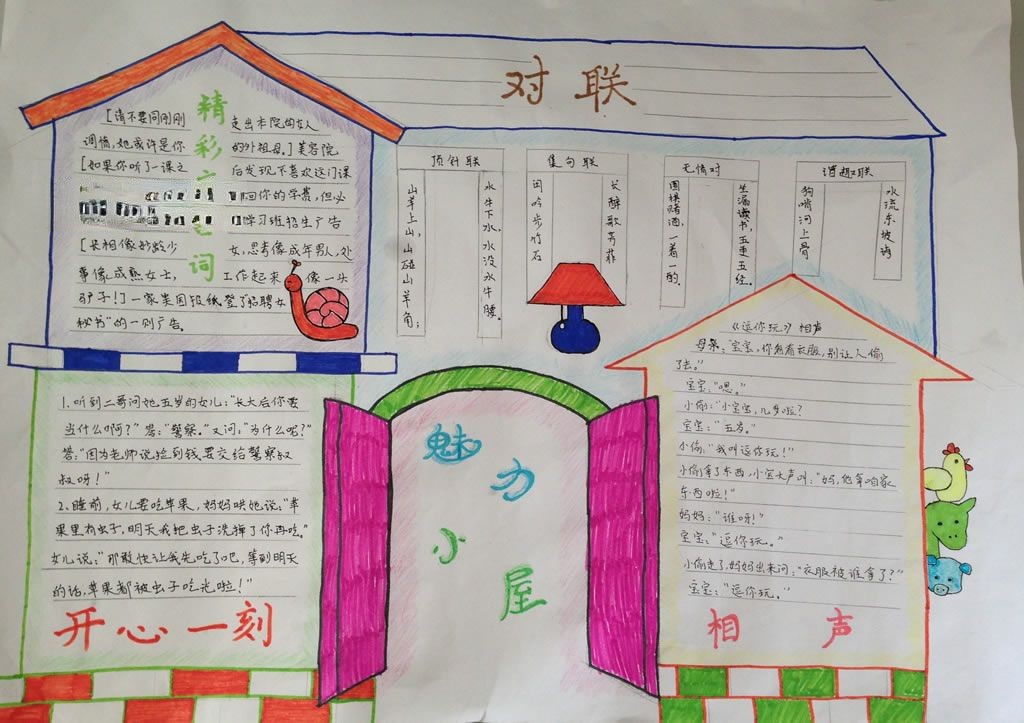 对联
精彩广告词
[请不要同刚刚走出本院的女人
调情,她或许是你的外祖母。]美容院
[如果你听了一课之后发现不喜欢这门课
回你的学费,但必
学习班招生广告
[长相像妙龄少女,思考像成年男人,处
事像成熟女士,工作起来像一头
驴子!]一家美国报纸登了招聘女
秘书"的一则广告。
顶针联
水牛下水,水没水牛腰。
山羊上山,山碰山羊角;
集句联
长醉歌芳菲
闲吟步竹石
无情对
生漏读书,五更五经。
围棋赌酒,一着一酌。
谐趣联
水流东坡诗
狗啃河上骨
1、听到二哥问她五岁的女儿:"长大后你要
当什么啊?"答:"警察。"又问:"为什么呢?"
答:"因为老师说捡到钱要交给警察叔
叔呀!"
2、睡前,女儿要吃苹果,妈妈哄她说:"苹
果里有虫子,明天我把虫子洗掉了你再吃。"
女儿说:"那敢快让我先吃了吧,等到明天
的话,苹果都被虫子吃光啦!"
开心一刻
魅力小屋
《逗你玩》相声
母亲:"宝宝,你看着衣服,别让人偷
了去。"
宝宝:"嗯。"
小偷:"小宝宝,几岁啦?
宝宝:"五岁。"
小偷:"我叫逗你玩!"
小偷拿了东西,小宝大声叫:"妈,他拿咱家
东西啦!"
妈妈:"谁呀!"
宝宝:"逗你玩。"
小偷走了,妈妈出来问:"衣服被谁拿了?"
宝宝:"逗你玩。"
相声